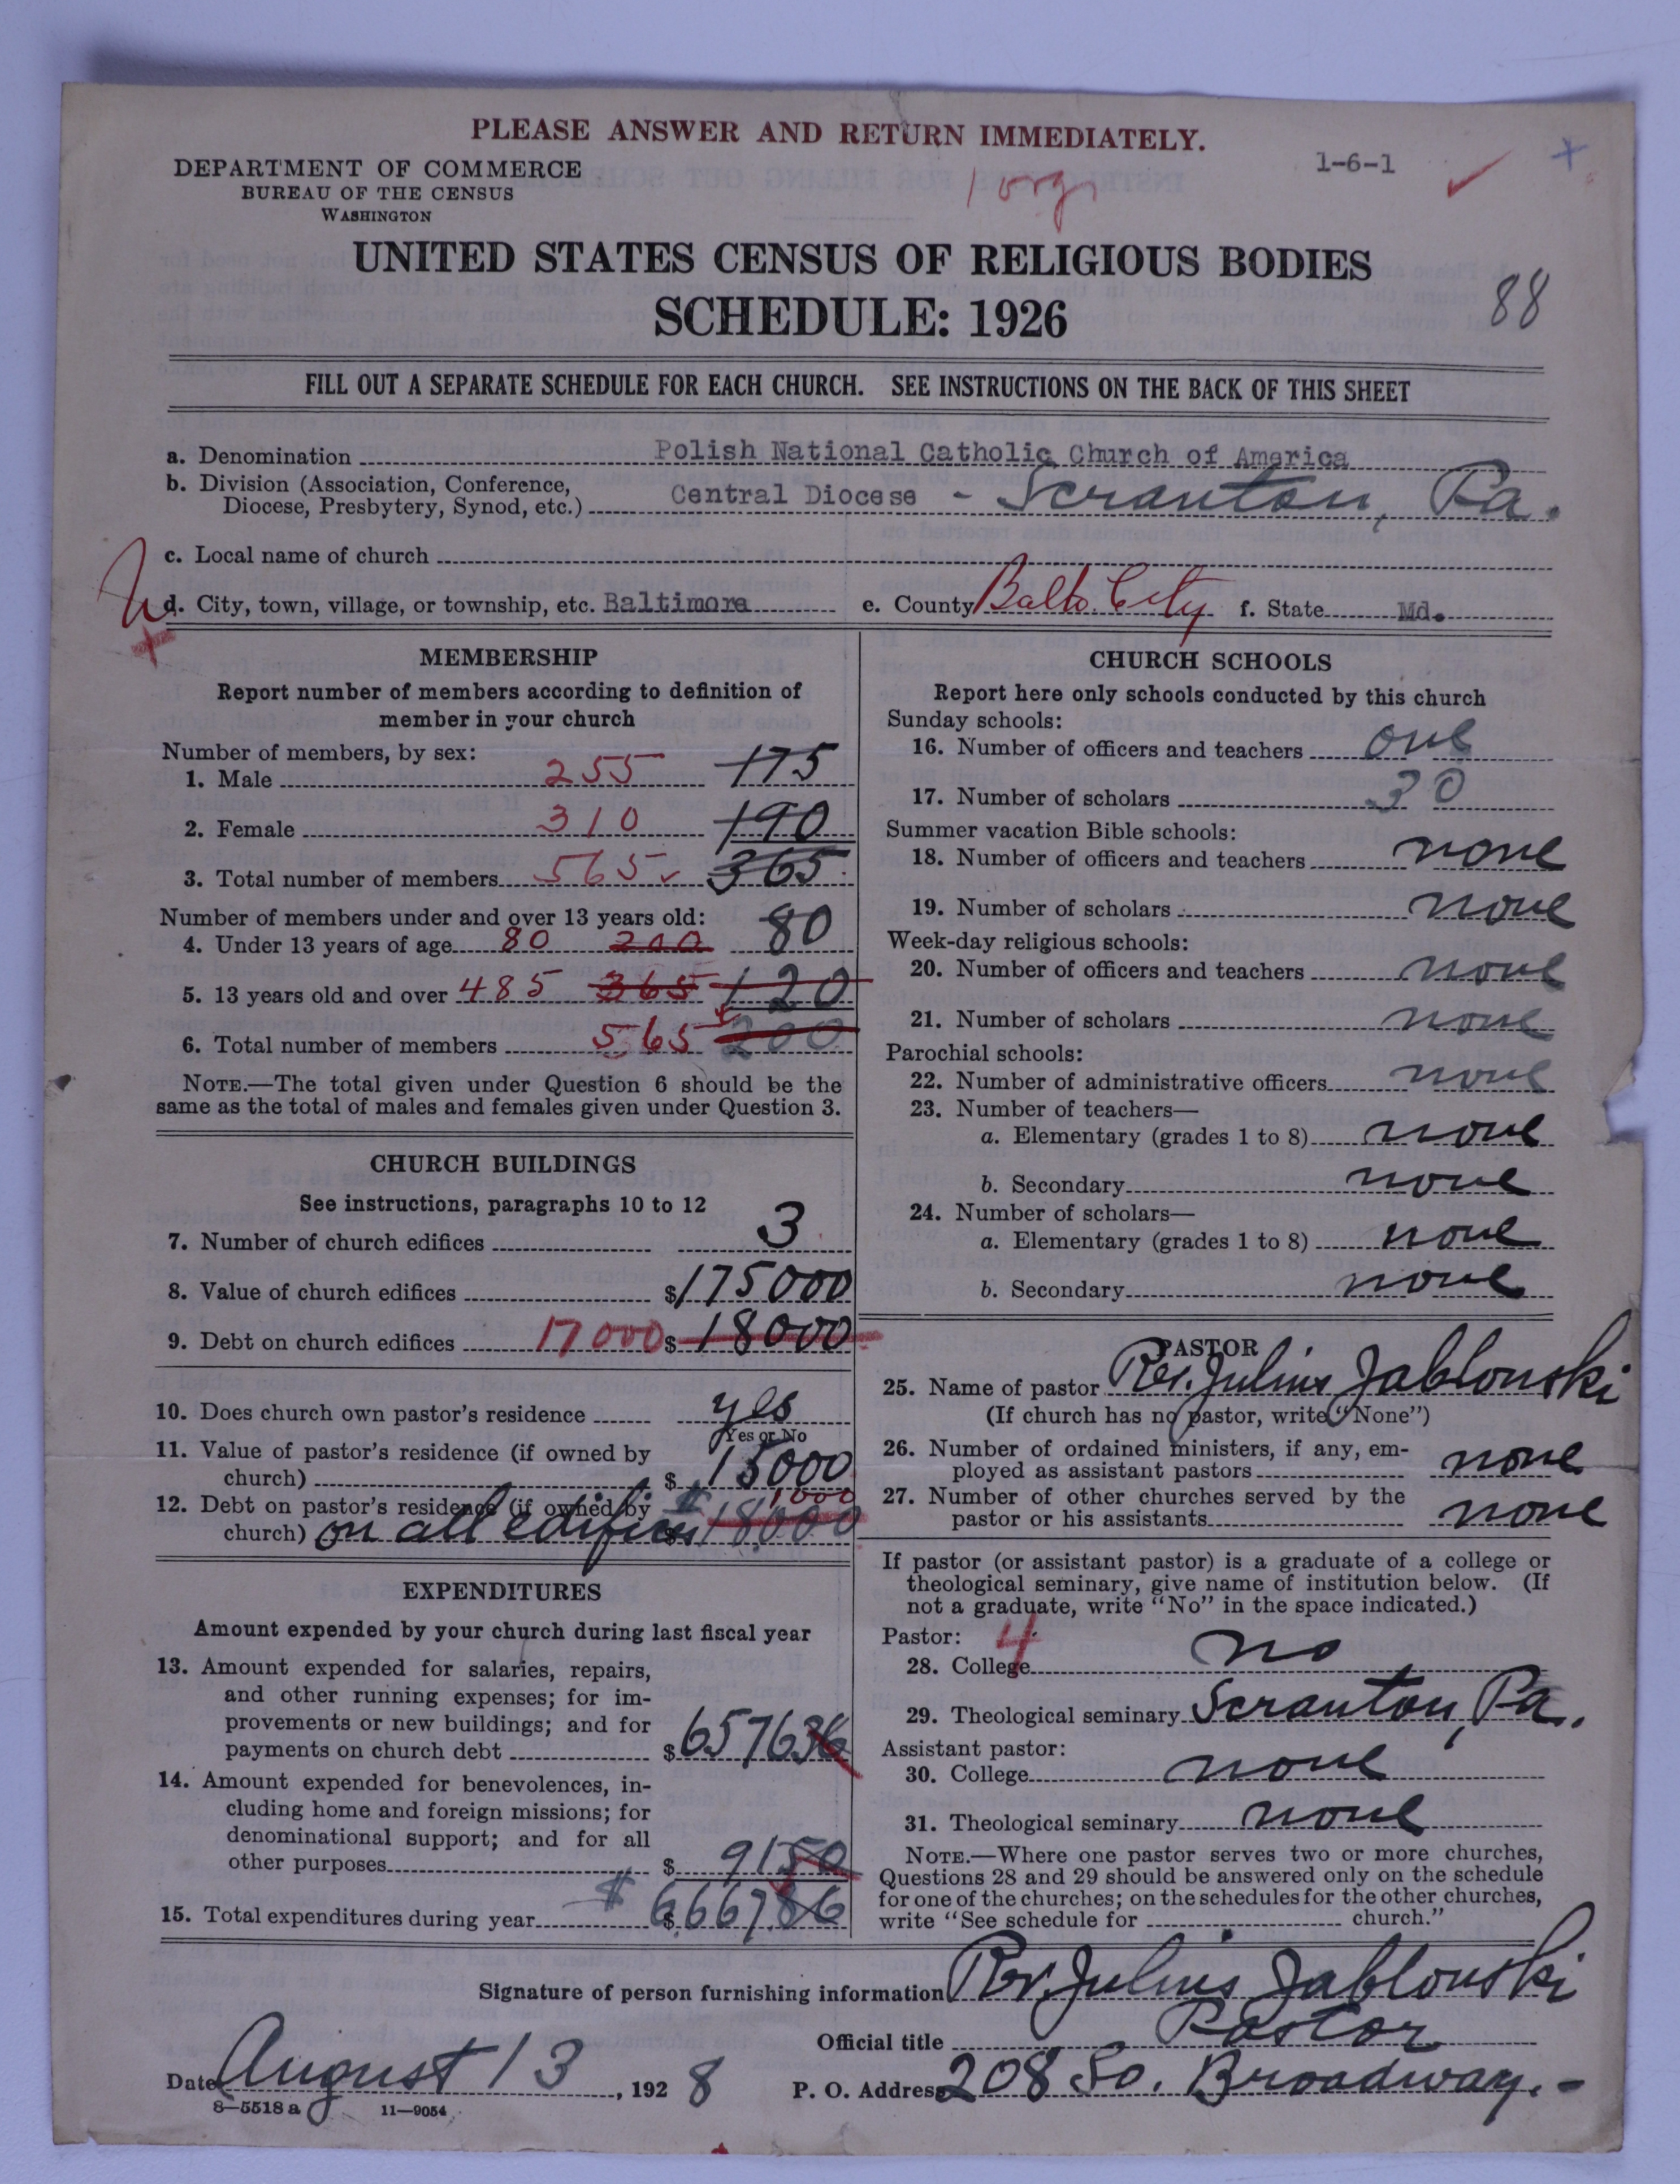 PLEASE ANSWER AND RETURN IMMEDIATELY.
DEPARTMENT OF COMMERCE
BUREAU OF THE CENSUS
WASHINGTON
1-6-1
1 org
UNITED STATES CENSUS OF RELIGIOUS BODIES
SCHEDULE: 1926
88
FILL OUT A SEPARATE SCHEDULE FOR EACH CHURCH. SEE INSTRUCTIONS ON THE BACK OF THIS SHEET
a. Denomination Polish National Catholic Church of America
b. Division (Association, Conference,
Diocese, Presbytery, Synod, etc.) Central Diocese - Scranton, Pa.
c. Local name of church
d. City, town, village, or township, etc. Baltimore e. County Balto. City f. State Md.
MEMBERSHIP
Report number of members according to definition of
member in your church
Number of members, by sex:
1. Male 255 175
2. Female 310 190
3. Total number of members 565 365
Number of members under and over 13 years old:
4. Under 13 years of age 80 200 80
5. 13 years old and over 485 365 120
6. Total number of members 565 200
NOTE.—The total given under Question 6 should be the
same as the total of males and females given under Question 3.
CHURCH BUILDINGS
See instructions, paragraphs 10 to 12
7. Number of church edifices 3
8. Value of church edifices $175000
9. Debt on church edifices 17000 $18000
10. Does church own pastor's residence yes
Yes or No
11. Value of pastor's residence (if owned by
church) $15000
12. Debt on pastor's residence (if owned by 1000
church) on all edifices $18000
EXPENDITURES
Amount expended by your church during last fiscal year
13. Amount expended for salaries, repairs,
and other running expenses; for im-
provements or new buildings; and for
payments on church debt $657636
14. Amount expended for benevolences, in-
cluding home and foreign missions; for
denominational support; and for all
other purposes $9150
15. Total expenditures during year $6667.86
CHURCH SCHOOLS
Report here only schools conducted by this church
Sunday schools:
16. Number of officers and teachers one
17. Number of scholars 30
Summer vacation Bible schools:
18. Number of officers and teachers none
19. Number of scholars none
Week-day religious schools:
20. Number of officers and teachers none
21. Number of scholars none
Parochial schools:
22. Number of administrative officers none
23. Number of teachers—
a. Elementary (grades 1 to 8) none
b. Secondary none
24. Number of scholars—
a. Elementary (grades 1 to 8) none
b. Secondary none
PASTOR
25. Name of pastor Rev. Julius Jablonski
(If church has no pastor, write "None")
26. Number of ordained ministers, if any, em-
ployed as assistant pastors none
27. Number of other churches served by the
pastor or his assistants none
If pastor (or assistant pastor) is a graduate of a college or
theological seminary, give name of institution below. (If
not a graduate, write "No" in the space indicated.)
Pastor: 4
28. College no
29. Theological seminary Scranton, Pa.
Assistant pastor:
30. College none
31. Theological seminary none
NOTE.—Where one pastor serves two or more churches,
Questions 28 and 29 should be answered only on the schedule
for one of the churches; on the schedules for the other churches,
write "See schedule for church."
Signature of person furnishing information Rev. Julius Jablonski
Official title Pastor
Date August 13, 1928 P. O. Address 208 So. Broadway.-
8—5518 a 11—9054